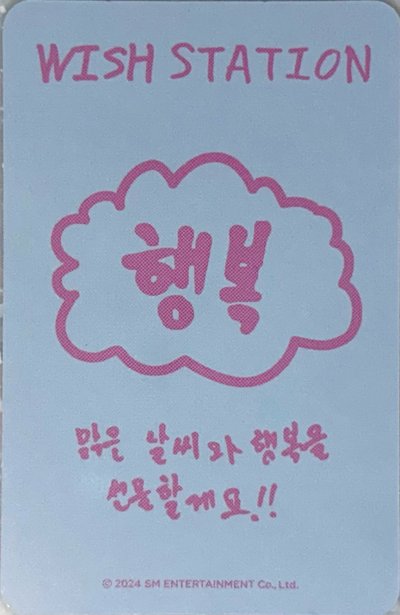 WISH STATION
행복
맑은 날씨와 행복을
선물할게요!!
© 2024 SM ENTERTAINMENT Co., Ltd.